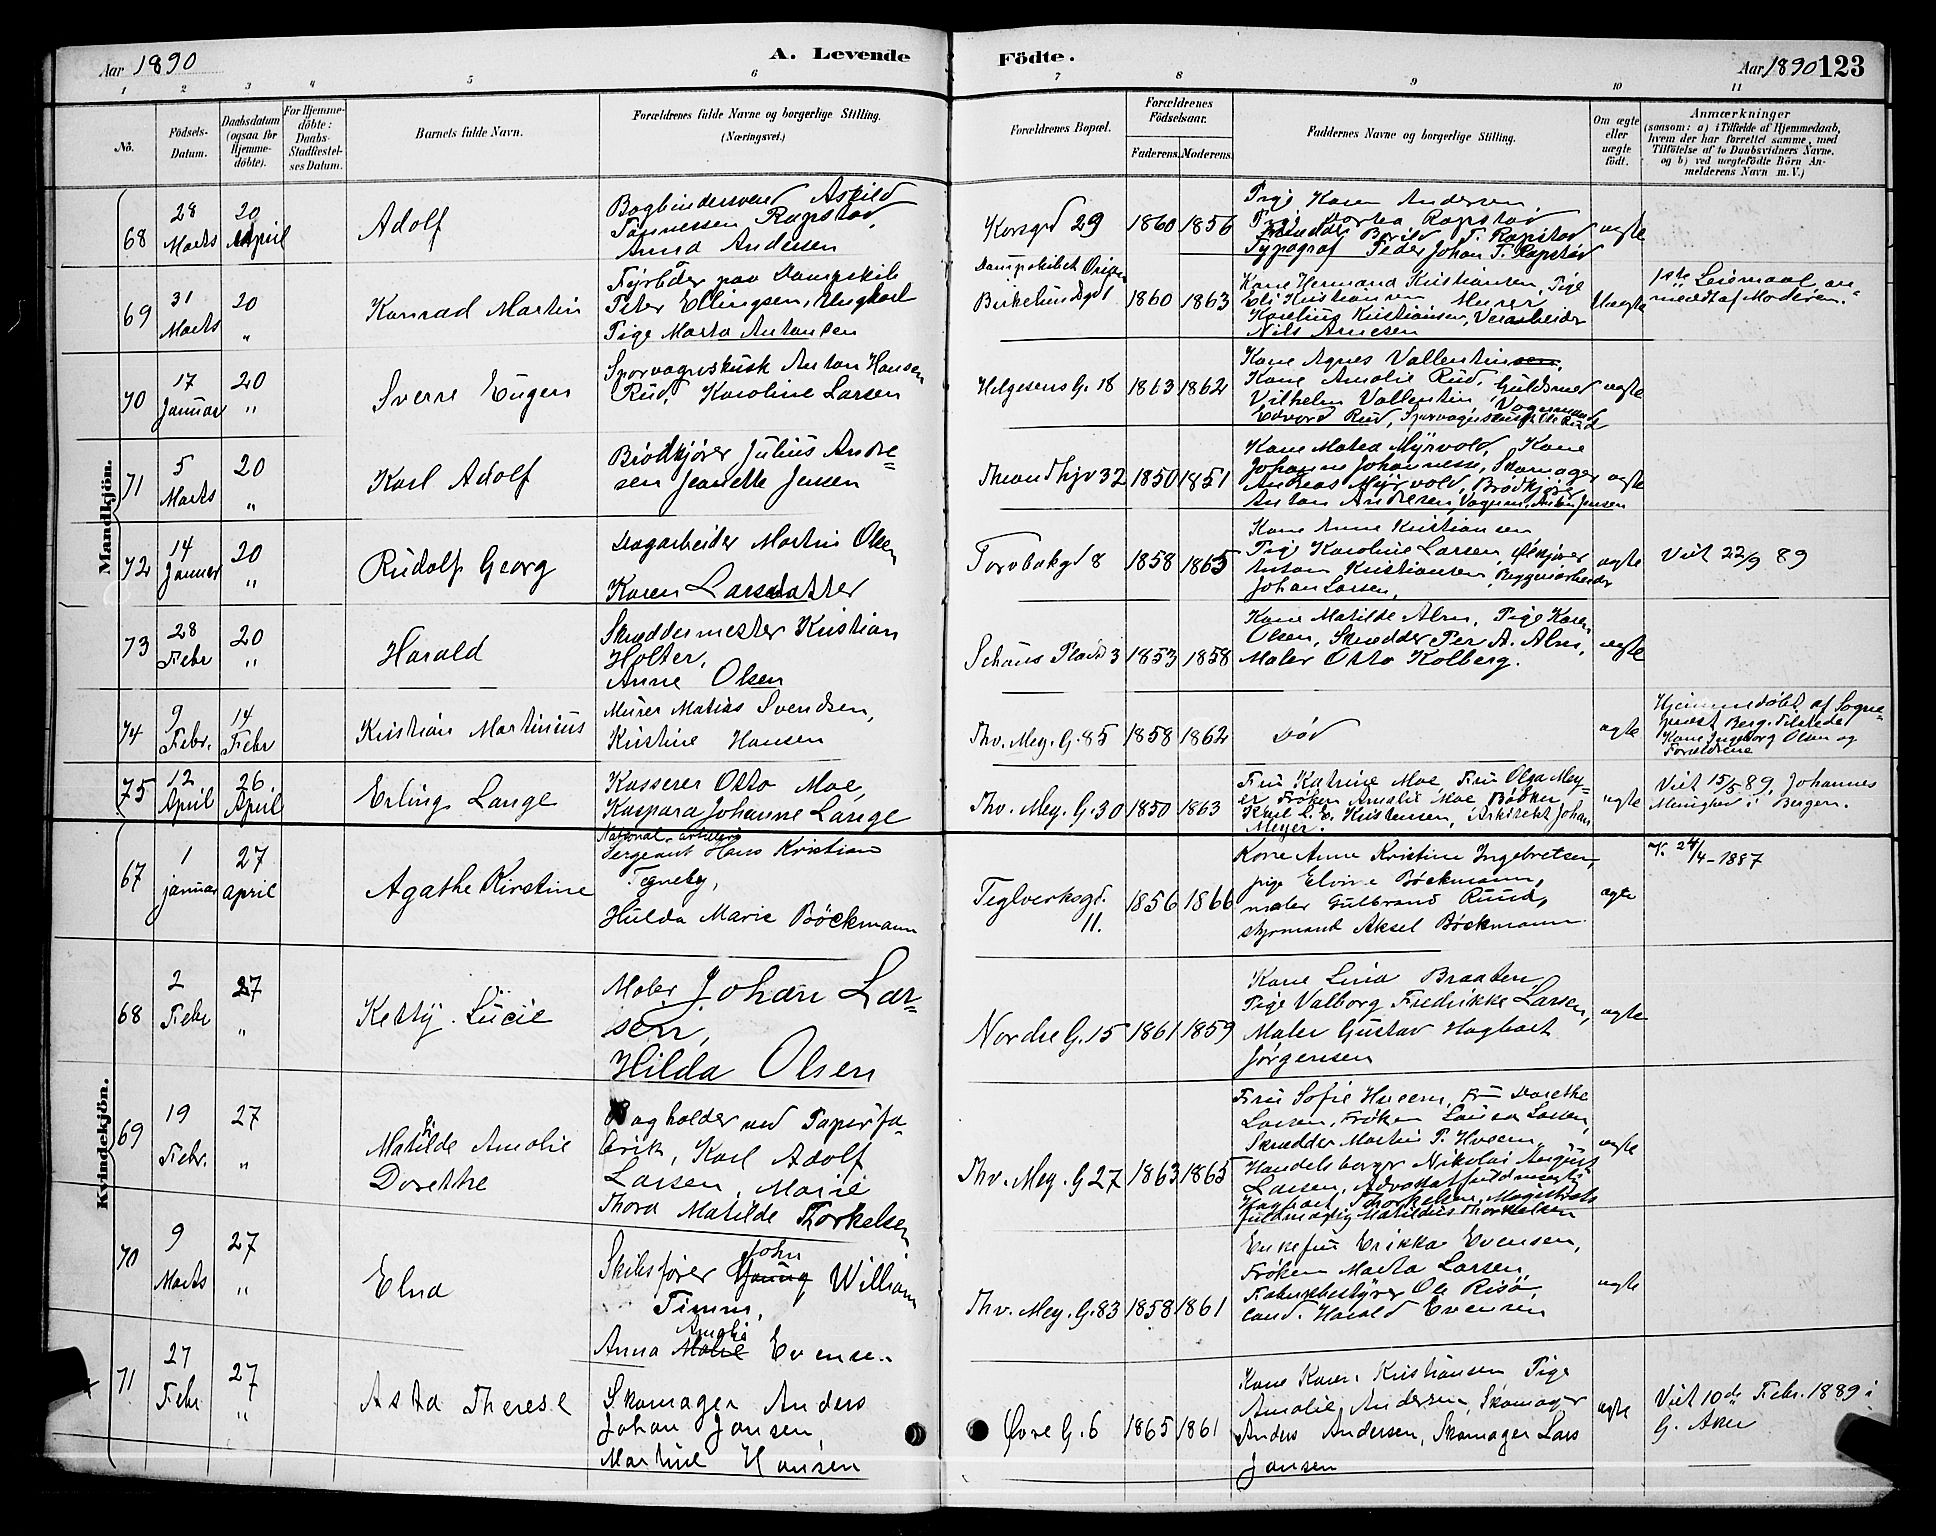 Aar 1890
A. Levende Födte.
Aar 1890 123
1 2 3 4 5 6 7 8 9 10 11
No.
Födsels-Datum.
Daabsdatum (ogsaa for Hjemme-döbte).
For Hjemme-döbte: Daabs-Stadfæstel-ses Datum.
Barnets fulde Navn.
Forældrenes fulde Navne og borgerlige Stilling. (Næringsvei.)
Forældrenes Bopæl.
Forældrenes Födselsaar.
Faderens. Moderens.
Faddernes Navne og borgerlige Stilling.
Om ægte eller uægte födt.
Anmærkninger
(saasom: a) i Tilfælde af Hjemmedaab,
hvem der har forrettet samme, med
Tilföielse af to Daabsvidners Navne.
og b) ved uægtefödte Börn An-
melderens Navn m. V.)
Mandkjön.
68
28 Marts
20 April
Adolf
Bogbindersvend Askild
Tønnessen Rapstad,
Anna Andersen
Korsgd 29
1860 1856
Pige Karen Andersen,
Pige Dortea Rapstad
T. Rapstad
Typograf Peder Johan T. Rapstad
ægte
69
31 Marts
20 "
Konrad Martin
Fyrbøder paa Dampskib
Peter Ellingsen, Ungkarl
Pige Marta Antonsen
Dampskibet
Birkelundgd 1
1860 1863
Kone Hermana Kristiansen, Pige
Eli Kristiansen, Murer
Karelius Kristiansen,
Nils Arnesen
Uægte
1ste Leiermaal an-
meldt af Moderen.
70
17 Januar
20 "
Sverre Eugen
Sporvognskusk Anton Hansen
Rud, Karoline Larsen
Helgesens G. 18
1863 1862
Kone Agnes Vallentinsen,
Kone Amalie Rud, Guldsmed
Vilhelm Vallentin, Vognmand
Edvard Rud, Sporvognskusk Ole Rud
ægte
71
5 Marts
20 "
Karl Adolf
Brödkjörer Julius Andre-
sen Jeanette Jensen
Trondhjv 32
1850 1851
Kone Matea Myrvold, Kone
Johanne Johannesse, Skomager
Andreas Myrvold, Brödkjörer
Anton Andresen, Vognm. Anton Jensen
ægte
72
14 Januar
20 "
Rudolf Georg
Dagarbeider Martin Olsen
Karen Larsdatter
Torvbakgd 8
1858 1865
Kone Anne Kristiansen
Pige Karoline Larsen, Ølkjører
Anton Kristiansen, Bryggeriarbeider
Johan Larsen,
ægte
Viet 22/9 89
73
28 Febr
20 "
Harald
Skræddermester Kristian
Holter,
Anne Olsen
Schous Plads 3
1853 1858
Kone Matilde Alm, Pige Karen
Olsen, Skrædder Per A. Alm,
Maler Otto Kolberg.
ægte
74
9 Febr.
14 Febr
Kristian Martinius
Murer Matias Svendsen,
Kristine Hansen
Thv. Mey. G. 85
1858 1862
Død
ægte
Hjemmedöbt af Sogne-
præst Berg. Tilstede
Kone Ingeborg Olsen og
Forældrene
75
12 April
26 April
Erling Lange
Kasserer Otto Moe,
Kaspara Johanne Lange
Thv. Mey. G. 30
1850 1863
Fru Katrine Moe, Fru Olga Mey-
er Frøken Amalie Moe,
Karl L. E. Kristensen, Arkitekt Johan
Meyer.
ægte
Viet 15/5 89, Johannes
Menighed i Bergen.
Kvindekjön.
67
1 januar
27 april
Agathe Kirstine
Sergeant Hans Kristian
Tegneby,
Hulda Marie Böckmann
Teglverksgd. 11.
1856 1866
Kone Anne Kristine Ingebretsen,
pige Elvine Böckmann,
maler Gulbrand Ruud,
styrmand Aksel Böckmann
ægte
V. 24/4-1887
68
2 Febr
27 "
Ketty Lucie
Maler Johan Lar-
sen,
Hilda Olsen
Nordre G. 15
1861 1859
Kone Lina Braaten,
Pige Valborg Fredrikke Larsen,
Maler Gustav Hagbart
Jørgensen
ægte
69
19 Febr.
27 "
Matilde Amalie
Dorethe
Bogholder ved Papirfa-
brik, Karl Adolf
Larsen, Marie
Thora Matilde Thorkelsen
Thv. Mey. G 27
1863 1865
Fru Sofie Hveem, Fru Dorethe
Larsen, Frøken Laura Larsen,
Skrædder Martin P. Hveem,
Handelsborger Nikolai August
Larsen, Advokatfuldmægtig
Hagbart Thorkelsen, Magistrats
fuldmægtig Matildius Thorkelsen
ægte
70
9 Marts
27 "
Elna
Skibsfører John William
Timm,
Anna Amalie Evensen
Thv. Mey. G. 83
1858 1861
Enkefru Erikka Evensen,
Frøken Marta Larsen,
Fabrikbestyrer Ole Risø,
cand. Harald Evensen
ægte
71
27 Febr
27 "
Asta Therese
Skomager Anders
Johan Jansen,
Martine Hansen
Øvre G. 6
1865 1861
Kone Karen Kristiansen Pige
Amalie Andersen, Skomager
Anders Andersen, Skomager Lars
Jansen
ægte
Viet 10de Febr. 1889 i
G. Aker